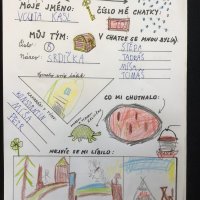 MOJE JMÉNO:
VOJTA KASL
ČÍSLO MÉ CHATKY:
MŮJ TÝM:
Číslo 8
Název: SRDÍČKA
V CHATCE SE MNOU BYLI:
ŠTĚPA
TADEÁŠ
MÍŠA
TOMÁŠ
CO MI CHUTNALO:
KAMARÁDI
KONSTANTIN
MÍŠA
PETR
NEJVÍC SE MI LÍBILO: